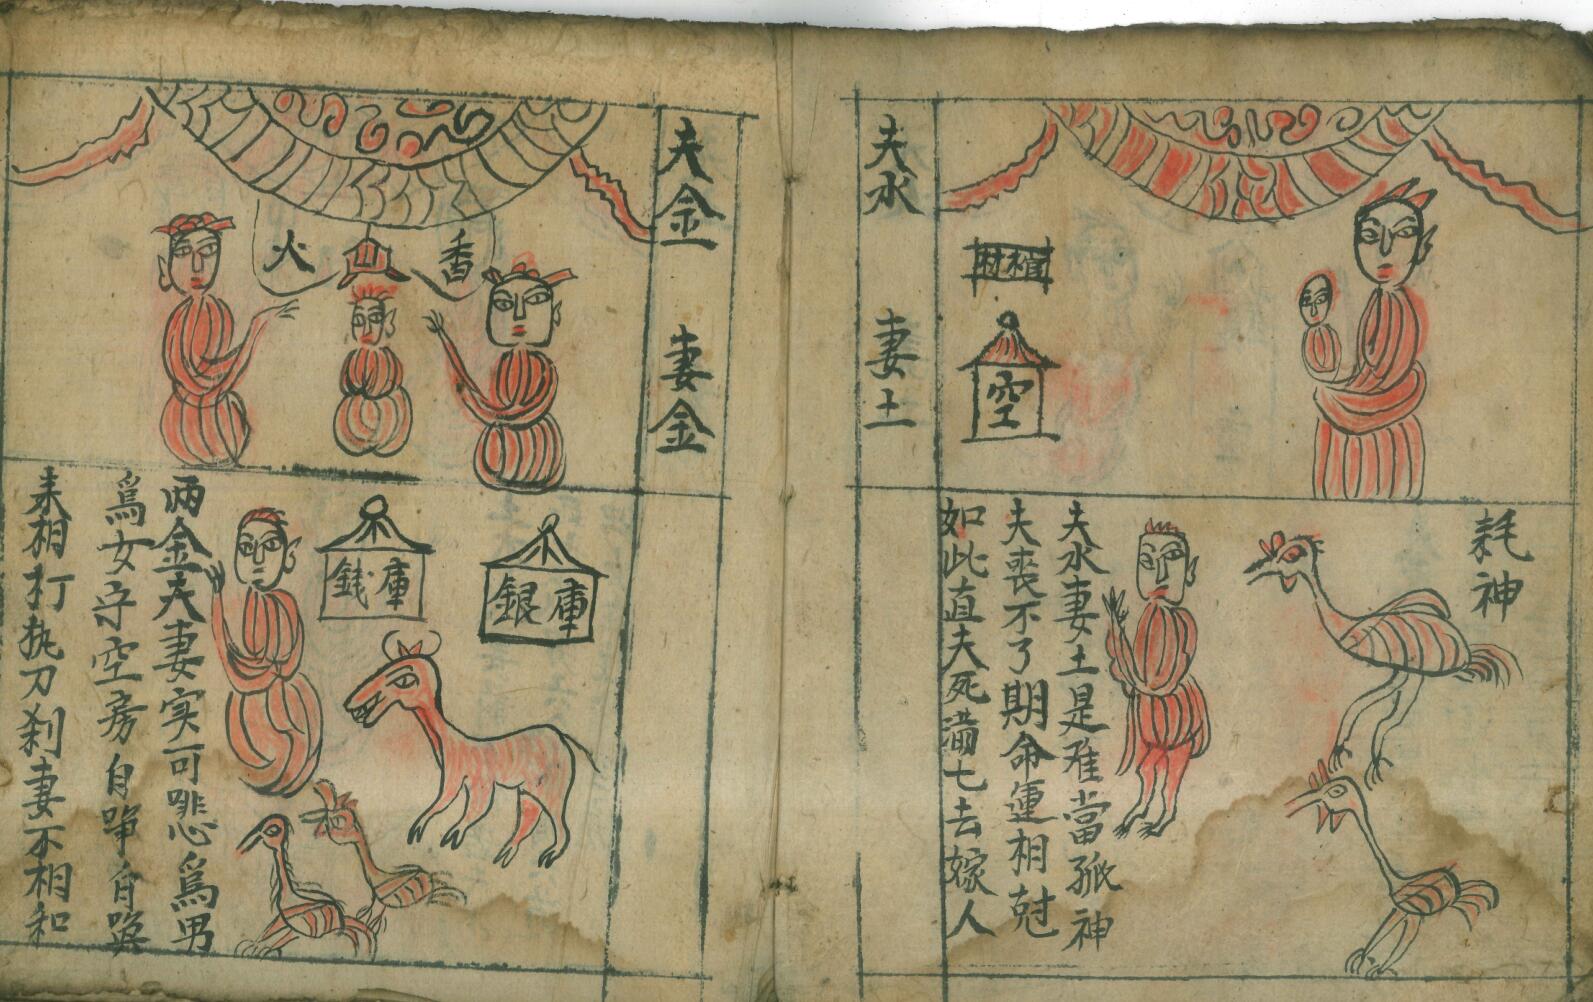 夫水 妻土
耗神
棺材
空
夫水妻土是难當孤神
夫喪不了期命運相尅
如此直夫死滿七去嫁人
夫金 妻金
香山火
銀庫
銭庫
两金夫妻实可悲爲男
爲女守空房自啼自
来相打执刀刹妻不相和